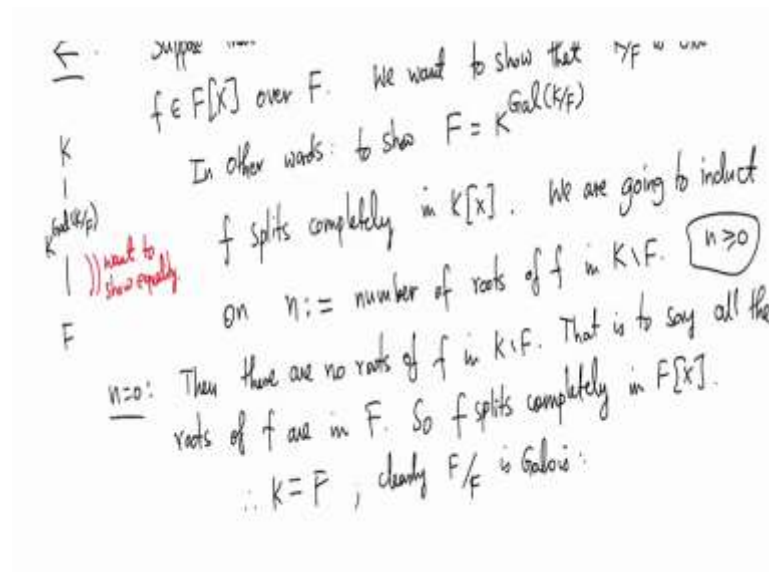 ←. Suppose
f ∈ F[X] over F. We want to show that K/F is
In other words: to show F = K^Gal(K/F)
K
|
K^Gal(K/F)
|
F
)) want to
show equality.
f splits completely in K[x]. We are going to induct
on n := number of roots of f in K\F. n ≥ 0
n=0: Then there are no roots of f in K\F. That is to say all the
roots of f are in F. So f splits completely in F[x].
∴ K = F, clearly F/F is Galois: